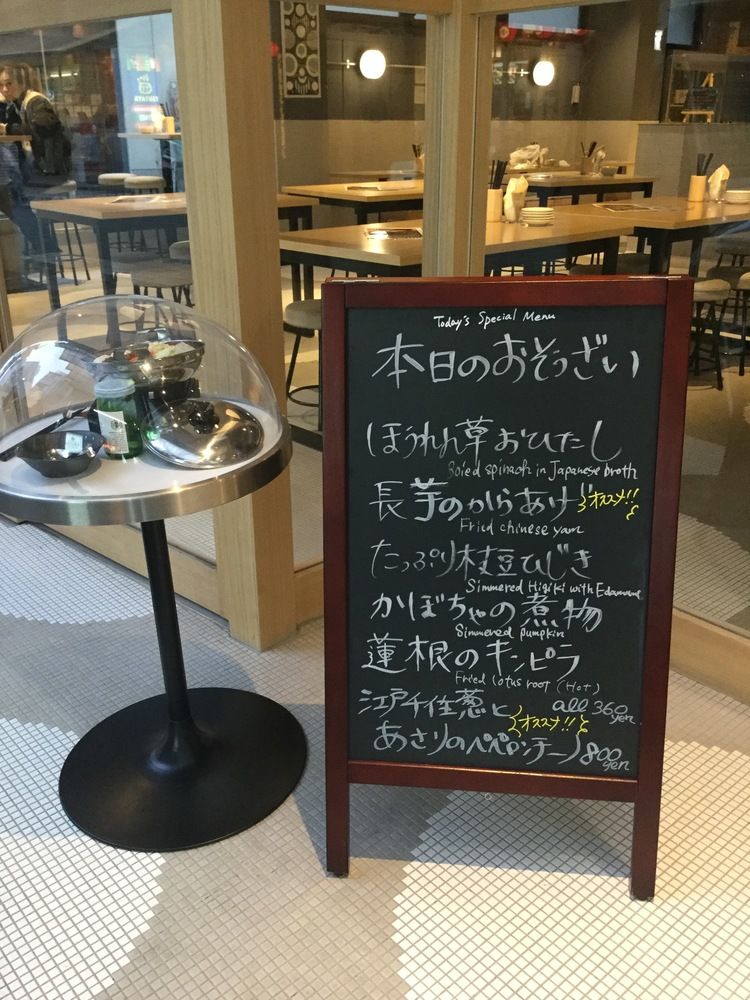 Today's Special Menu
本日のおそうざい
ほうれん草おひたし
Boied spinach in Japanese broth
長芋のからあげ オススメ!!
Fried chinese yam
たっぷり枝豆ひじき
Simmered Hijiki with Edamame
かぼちゃの煮物
Simmered pumpkin
蓮根のキンピラ
Fried lotus root (Hot)
all 360 yen
江戸千住葱と オススメ!!
あさりのペペロンチーノ 800 yen